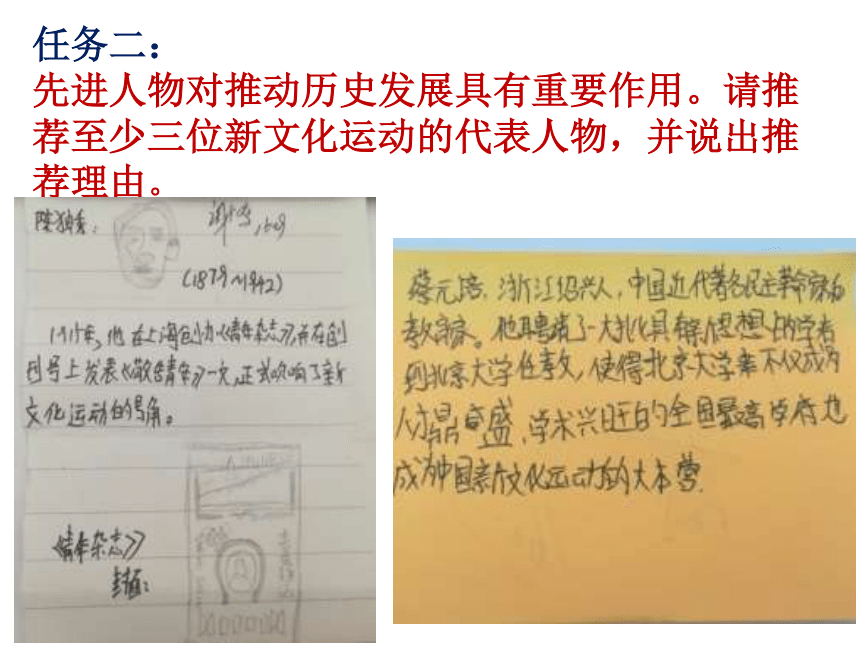 任务二：
先进人物对推动历史发展具有重要作用。请推
荐至少三位新文化运动的代表人物，并说出推
荐理由。
陈独秀：
(1879~1942)
1915年，他在上海创办《青年杂志》，并在创
刊号上发表《敬告青年》一文，正式吹响了新
文化运动的号角。
《青年杂志》
封面：
蔡元培，浙江绍兴人，中国近代著名民主革命家和
教育家。他聘请了一大批具有新思想的学者
到北京大学任教，使得北京大学不仅成为
人才鼎盛、学术兴旺的全国最高学府也
成为中国新文化运动的大本营.